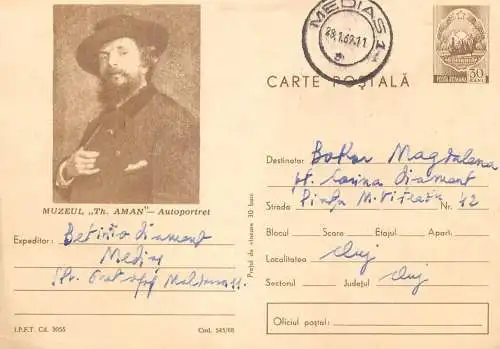 MEDIAS
28.1.69.11
POSTA ROMANA
30
BANI
CARTE POȘTALĂ
MUZEUL „Th. AMAN"— Autoportret
Expeditor:
Medias
Prețul de vînzare 30 bani
Destinatar Magdalena
pt. Corina Diamant
Strada Piața M. Viteazu Nr. 12
Blocul Scara Etajul Apart.
Localitatea Cluj
Sectorul Județul Cluj
Oficiul poștal:
I.P.F.T. Cd. 3055
Cod. 545/68